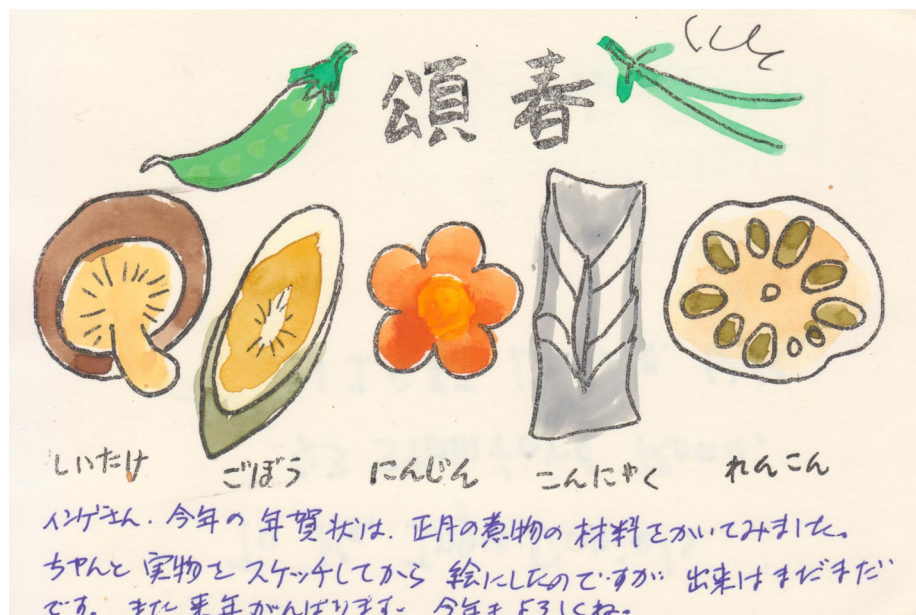 頌春
しいたけ ごぼう にんじん こんにゃく れんこん
インゲさん、今年の年賀状は、正月の煮物の材料をかいてみました。
ちゃんと実物をスケッチしてから絵にしたのですが出来はまだまだ
です。また来年がんばります。今年もよろしくね。